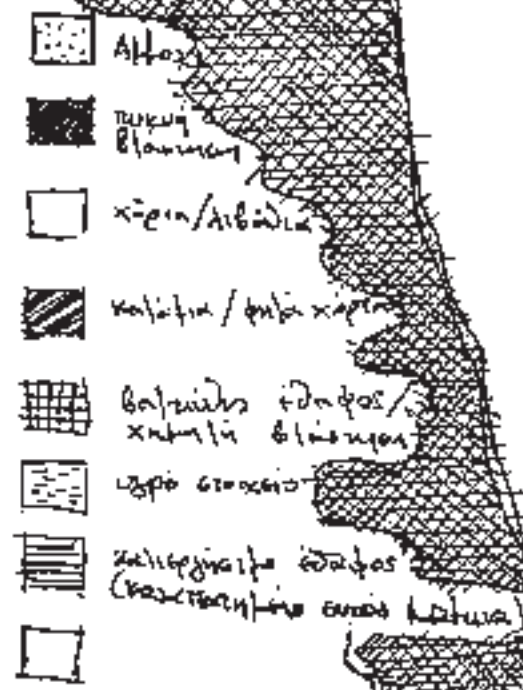 Άμμος
πυκνή
βλάστηση
χόρτα/λιβάδια
καλάμια / ψηλά χόρτα
βαλτώδες έδαφος /
χαμηλή βλάστηση
υγρό στοιχείο
καλιεργήσιμο έδαφος